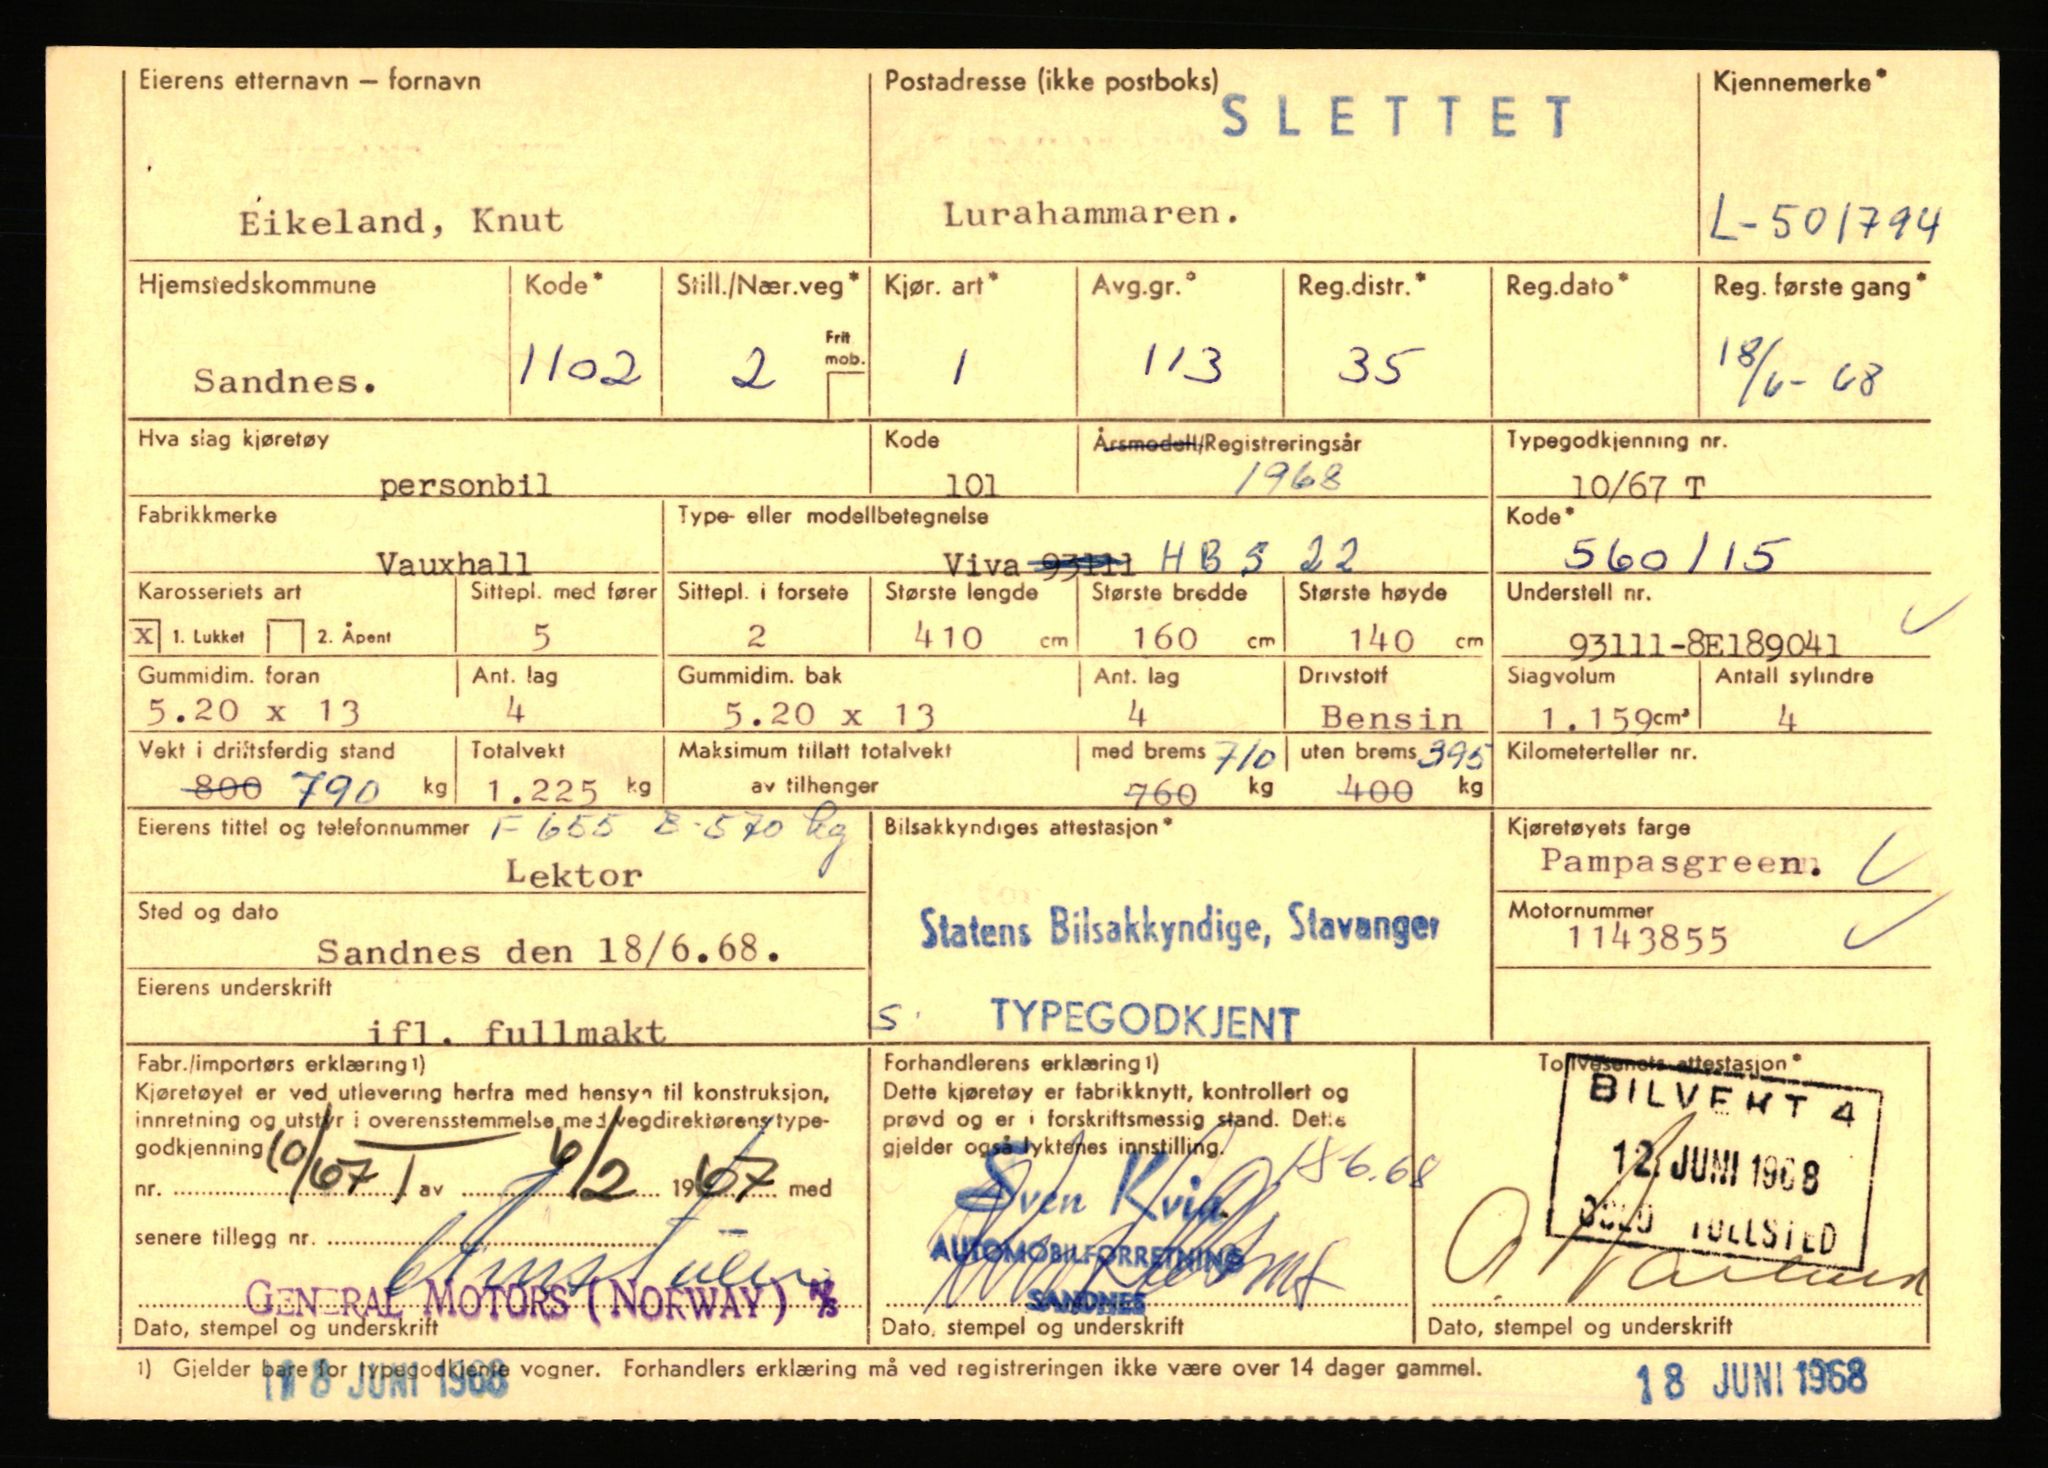 Eierens etternavn – fornavn
Postadresse (ikke postboks)
SLETTET
Kjennemerke*
Eikeland, Knut
Lurahammaren.
L-501794
Hjemstedskommune
Kode*
Still./Nær.veg*
Kjør. art*
Avg.gr.*
Reg.distr.*
Reg.dato*
Reg. første gang*
Sandnes.
1102
2
Frit mob.
1
113
35
18/6-68
Hva slag kjøretøy
Kode
Årsmodell/Registreringsår
Typegodkjenning nr.
personbil
101
1968
10/67 T
Fabrikkmerke
Type- eller modellbetegnelse
Kode*
Vauxhall
Viva 93111 HBS 22
560/15
Karosseriets art
Sittepl. med fører
Sittepl. i forsete
Største lengde
Største bredde
Største høyde
Understell nr.
X 1. Lukket
2. Åpent
5
2
410 cm
160 cm
140 cm
93111-8E189041
Gummidim. foran
Ant. lag
Gummidim. bak
Ant. lag
Drivstoff
Slagvolum
Antall sylindre
5.20 x 13
4
5.20 x 13
4
Bensin
1.159 cm³
4
Vekt i driftsferdig stand
Totalvekt
Maksimum tillatt totalvekt
med brems 710
uten brems 395
Kilometerteller nr.
800 790 kg
1.225 kg
av tilhenger
760 kg
400 kg
Eierens tittel og telefonnummer
F 655 B-570 kg
Bilsakkyndiges attestasjon*
Kjøretøyets farge
Lektor
Pampasgreen.
Sted og dato
Statens Bilsakkyndige, Stavanger
Motornummer
Sandnes den 18/6.68.
1143855
Eierens underskrift
ifl. fullmakt
S. TYPEGODKJENT
Fabr./importørs erklæring 1)
Kjøretøyet er ved utlevering herfra med hensyn til konstruksjon,
innretning og utstyr i overensstemmelse med vegdirektørens type-
godkjenning
nr. 10/67 T av 6/2 1967 med
senere tillegg nr.
GENERAL MOTORS (NORWAY) A/S
Dato, stempel og underskrift
Forhandlerens erklæring 1)
Dette kjøretøy er fabrikknytt, kontrollert og
prøvd og er i forskriftsmessig stand. Dette
gjelder også lyktenes innstilling.
18-6.68
Sven Kvia
AUTOMOBILFORRETNING
SANDNES
Dato, stempel og underskrift
Tollvesenets attestasjon*
BILVEKT 4
12 JUNI 1968
OSLO TOLLSTED
Dato, stempel og underskrift
1) Gjelder bare for typegodkjente vogner. Forhandlers erklæring må ved registreringen ikke være over 14 dager gammel.
18 JUNI 1968
18 JUNI 1968